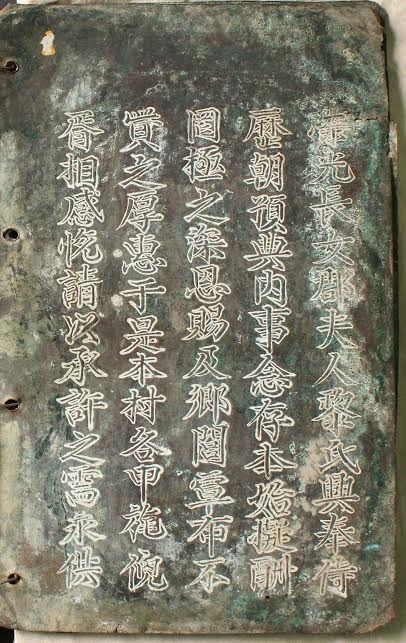 光長女郡夫人黎氏興奉侍
歷朝預典內事念存本始擬酬
罔極之深恩賜及鄉閭宣布不
貲之厚惠于是本村各甲旄倪
胥相感悅請以承許之需永供